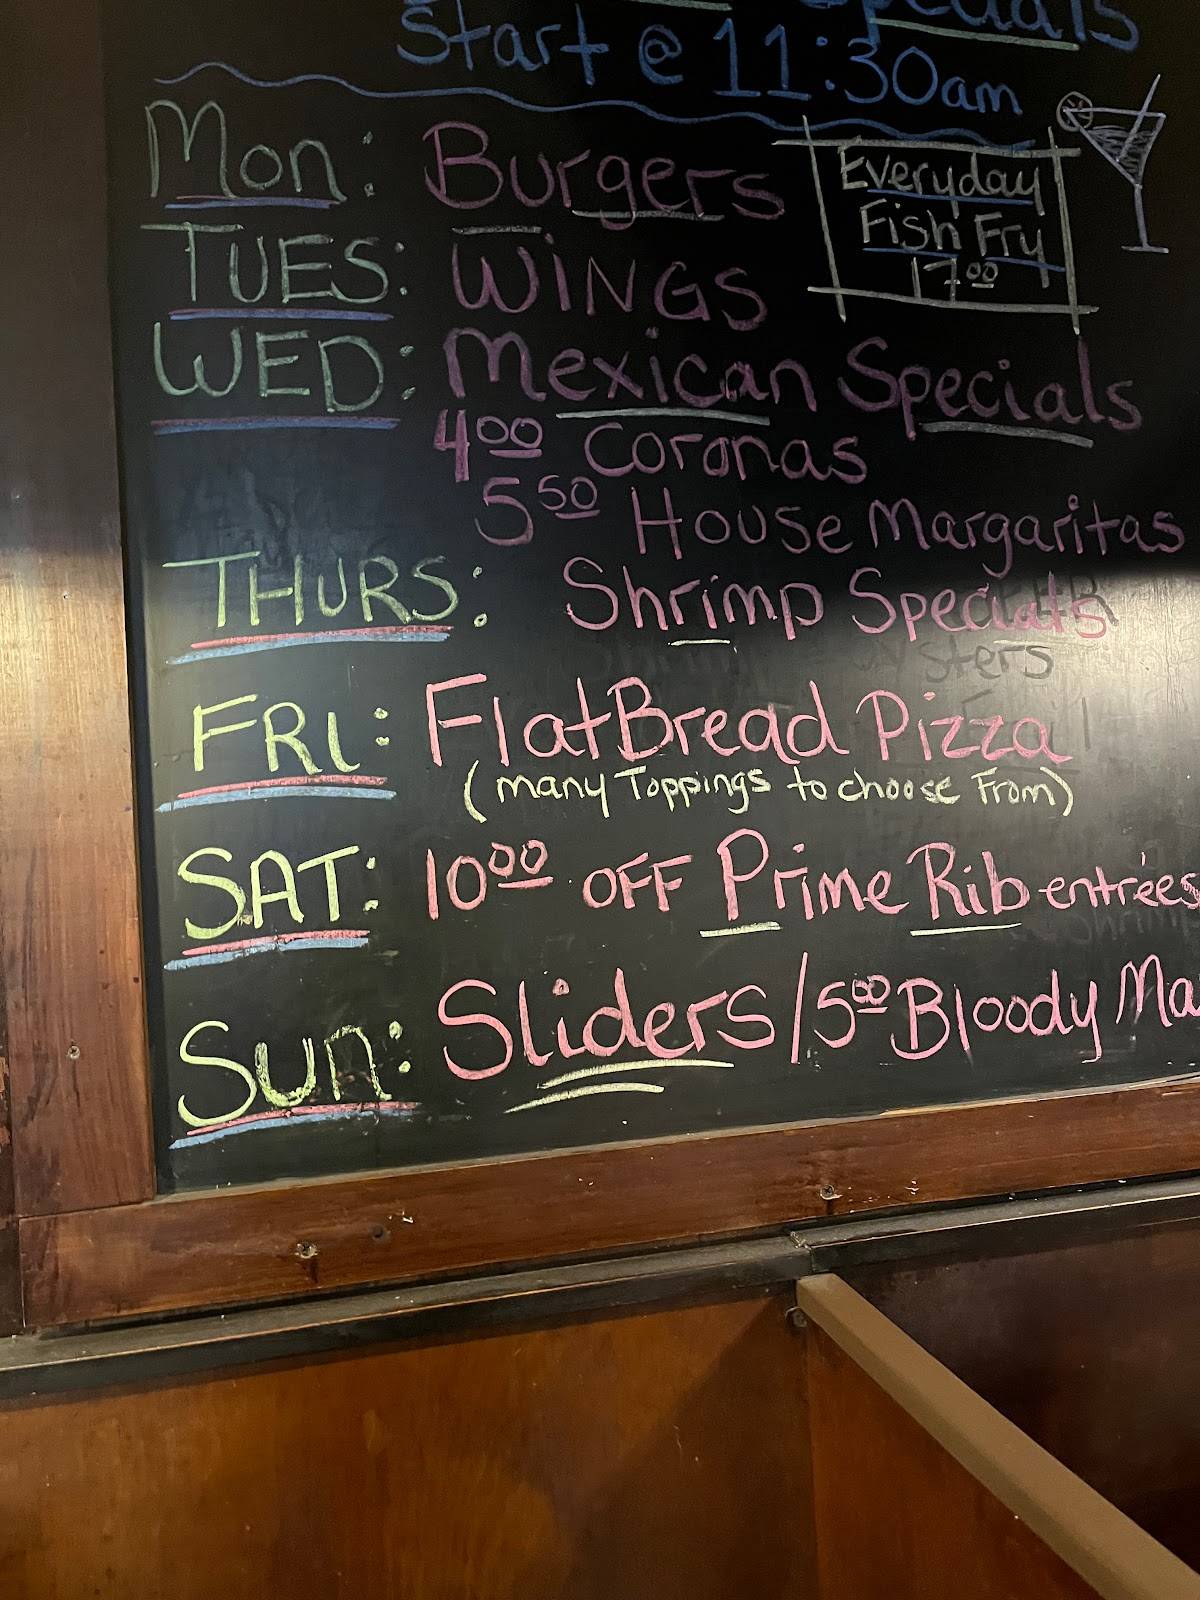 Specials
Start @ 11:30am
Mon: Burgers
Everyday
Fish Fry
17.00
TUES: WINGS
WED: Mexican Specials
4.00 Coronas
5.50 House Margaritas
THURS: Shrimp Specials
FRI: FlatBread Pizza
(many Toppings to choose From)
SAT: 10.00 OFF Prime Rib entrées
Sun: Sliders/5.00 Bloody Ma